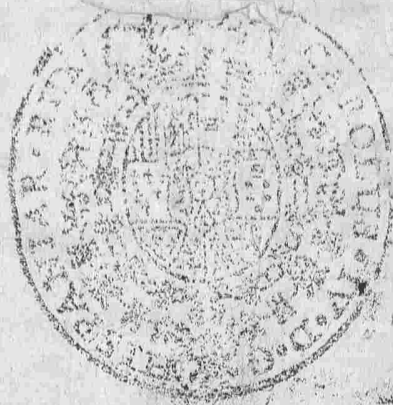 CAROLUS·IV·D·G·HISPANIAR·REX